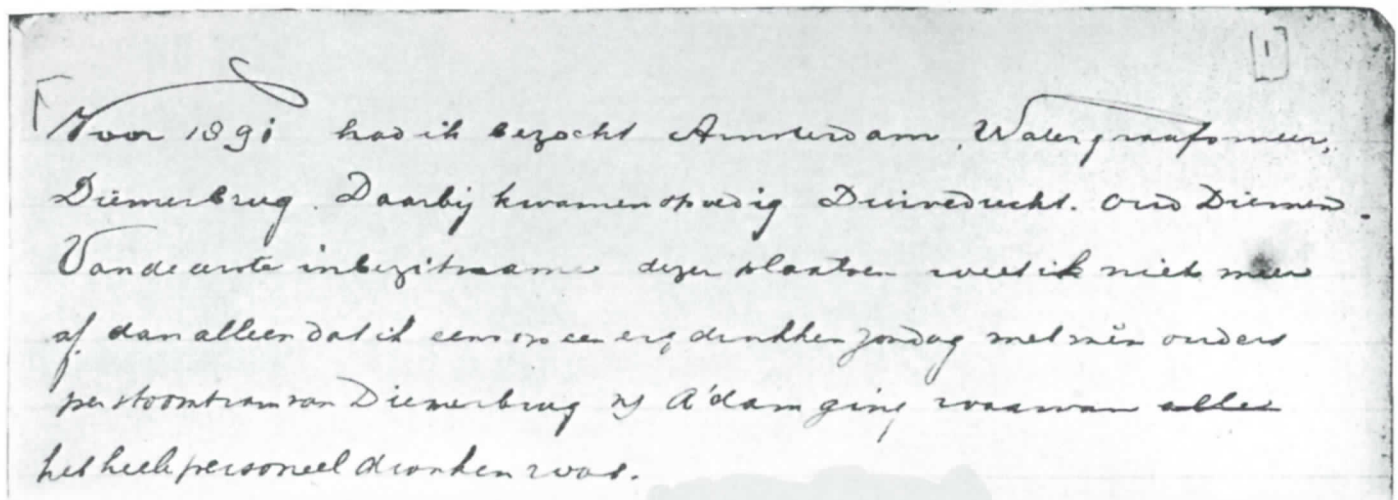 [1]
Voor 1891 had ik bezocht Amsterdam, Watergraafsmeer,
Diemerbrug. Daarbij kwamen spoedig Duivendrecht. Oud Diemen.
Van de eerste inbezitname dezer plaatsen weet ik niet meer
af dan alleen dat ik eens op een erg drukken zondag met mijn ouders
per stoomtram van Diemerbrug n/ A'dam ging waarvan alle
het heele personeel dronken was.